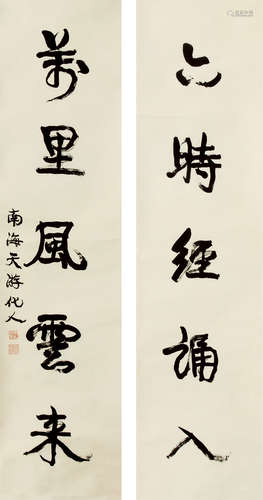 六時經誦入
萬里風雲来
南海天游化人